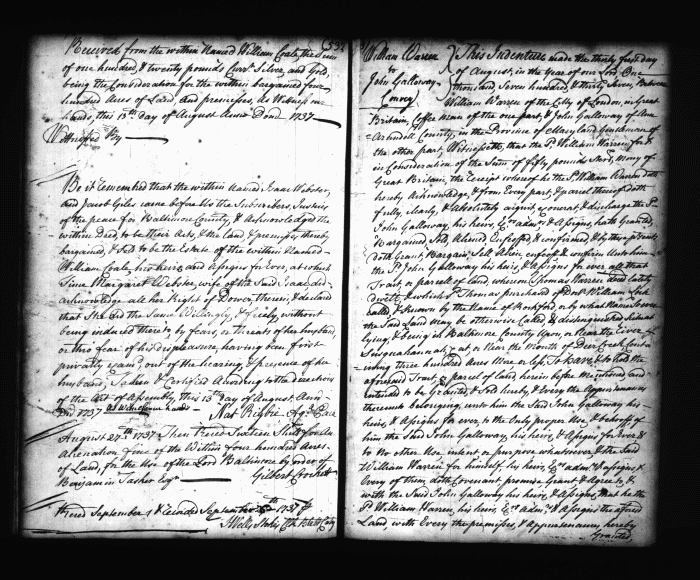 Received from the within Named William Coale, the Sum
of one hundred, & twenty pounds Curr.t Silver, and Gold,
being the Consideration for the within bargained four
hundred Acres of Land, and premises, As Witness our
hands, this 15th day of August Anno Dom.i 1737
Witnessed by
Be it remembred that the within Named Isaac Webster,
and Jacob Giles came before Us the Subscribers, Justices
of the peace for Baltimore County, & Acknowledged the
within Deed, to be their Act, & the Land & premises, thereby
bargained, & Sold to be the Estate of the within Named
William Coale, his heirs and Assigns for Ever, at which
Time Margaret Webster, wife of the Said Isaac, did
acknowledge all her Right of Dower, therein, & declared
that She did the Same Willingly, & freely, without
being induced thereto by fears, or threats of her husband,
or thro' fear of his displeasure, having been first
privately examd, out of the hearing, & presence of her
husband, Taken & Certified According to the directions
of the Act of Assembly, this 15th day of August, Ann
Do. 1737 as Witness our hands
Nat Rigbie
August 27th 1737. Then Recd Sixteen Shill.s for An
Alienation fine of the Within four hundred Acres
of Land, for the Use of the Lord Baltimore by order of
Benjamin Tasker Esqr
Gilbert Crockett
Recd September & Recorded September 1737
William Warren
to
John Galloway
Convey
This Indenture made the thirty first day
of August, in the year of our Lord One
thousand Seven hundred, & thirty Seven, Between
William Warren of the City of London, in Great
Britain, of the one part, & John Galloway of Ann
Arundell County, in the Province of Maryland Gentleman of
the other part, Witnesseth, that the Sd William Warren, for &
in Consideration of the Sum of fifty pounds Sterl. Mony of
Great Britain, the Receipt whereof he the Sd William Warren doth
hereby Acknowledge, & from Every part, & parcel thereof doth
fully, clearly, & absolutely acquit, exonerate, & discharge the Sd
John Galloway, his heirs, Exrs admrs & Assigns, hath Granted,
Bargained Sold, Aliened, Enfeoffed, & confirmed, & by these presents
doth Grant Bargain, Sell Alien, enfeoff, & confirm Unto him
the Sd John Galloway his heirs, & Assigns for ever all that
Tract, or parcel of land, whereon Thomas Warren did lately
dwell, & which Sd Thomas purchased of
called, & known by the Name of or by what Name soever
the Said Land may be otherwise Called, & distinguished Situate
lying, & being in Baltimore County, Upon, or Near the River of
Susquehannah, & at, or Near the Mouth of Deer Creek,
three hundred Acres More or less, To have & to Hold the
aforesaid Tract, or parcel of land, herein before Mentioned, and
intended to be Granted, & Sold hereby, & Every the Appurtenances
thereunto belonging, unto him the Said John Galloway his
heirs, & Assigns for ever, to the Only proper Use, & behoofe of
him the Said John Galloway, his heirs, & Assigns for Ever &
to No other Use, intent, or purpose whatsoever, & the Said
William Warren for himself, his heirs, Exrs admrs & Assigns, &
Every of them, doth Covenant promise Grant & Agree to, &
with the Said John Galloway his heirs, & Assigns, that he the
Sd William Warren, his heirs, Exrs admrs & Assigns the aforesd
Land, with Every the premises, & Appurtenances, hereby
Granted,